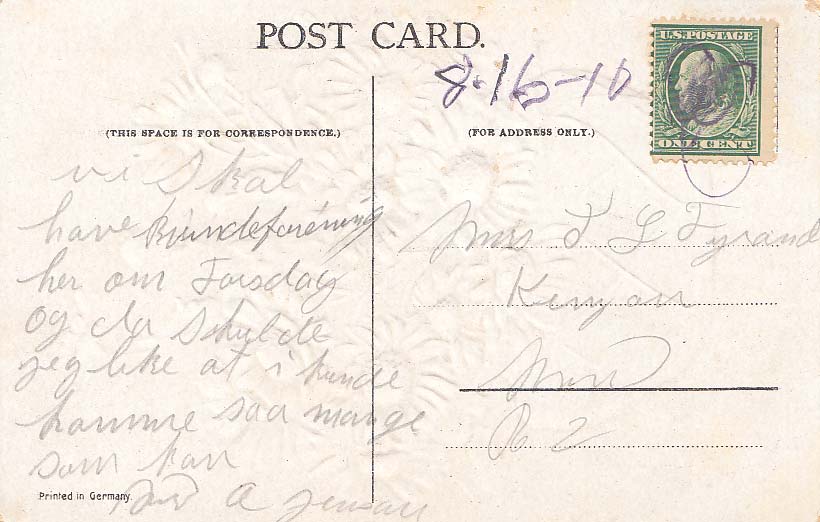 POST CARD.
8-16-10
U.S. POSTAGE
ONE CENT
(THIS SPACE IS FOR CORRESPONDENCE.)
(FOR ADDRESS ONLY.)
vi Skal
have Kvindeforening
her om Torsdag
og da Skulde
jeg like at i kunde
komme saa mange
som kan
A Jensen
Mrs T L Tyrand
Kenyon
Minn
R 2
Printed in Germany.